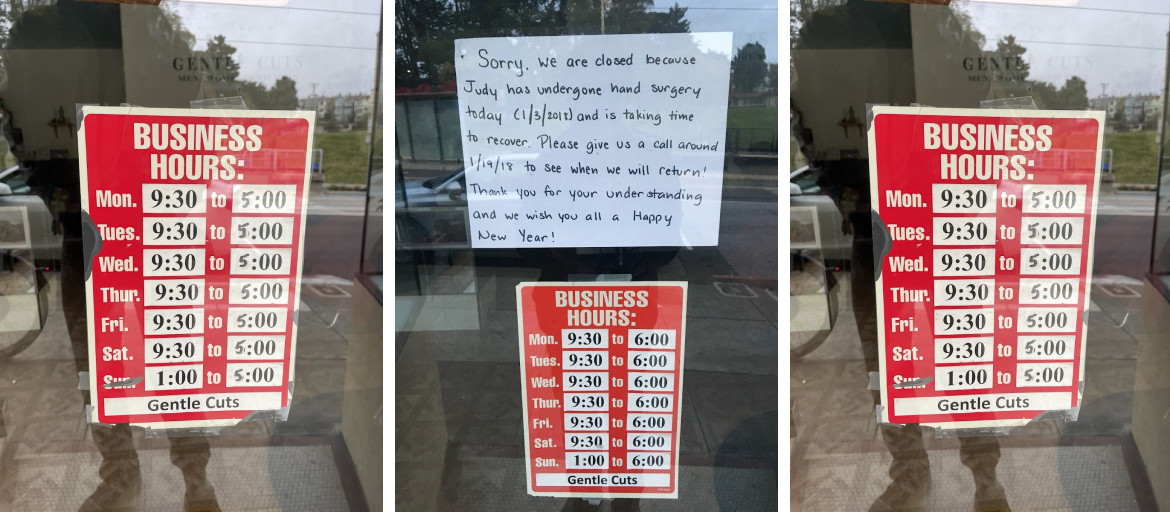 GENTLE CUTS
BUSINESS
HOURS:
Mon. 9:30 to 5:00
Tues. 9:30 to 5:00
Wed. 9:30 to 5:00
Thur. 9:30 to 5:00
Fri. 9:30 to 5:00
Sat. 9:30 to 5:00
Sun. 1:00 to 5:00
Gentle Cuts
Sorry, we are closed because
Judy has undergone hand surgery
today (1/3/2018) and is taking time
to recover. Please give us a call around
1/19/18 to see when we will return!
Thank you for your understanding
and we wish you all a Happy
New Year!
BUSINESS
HOURS:
Mon. 9:30 to 6:00
Tues. 9:30 to 6:00
Wed. 9:30 to 6:00
Thur. 9:30 to 6:00
Fri. 9:30 to 6:00
Sat. 9:30 to 6:00
Sun. 1:00 to 6:00
Gentle Cuts
GENTLE CUTS
BUSINESS
HOURS:
Mon. 9:30 to 5:00
Tues. 9:30 to 5:00
Wed. 9:30 to 5:00
Thur. 9:30 to 5:00
Fri. 9:30 to 5:00
Sat. 9:30 to 5:00
Sun. 1:00 to 5:00
Gentle Cuts